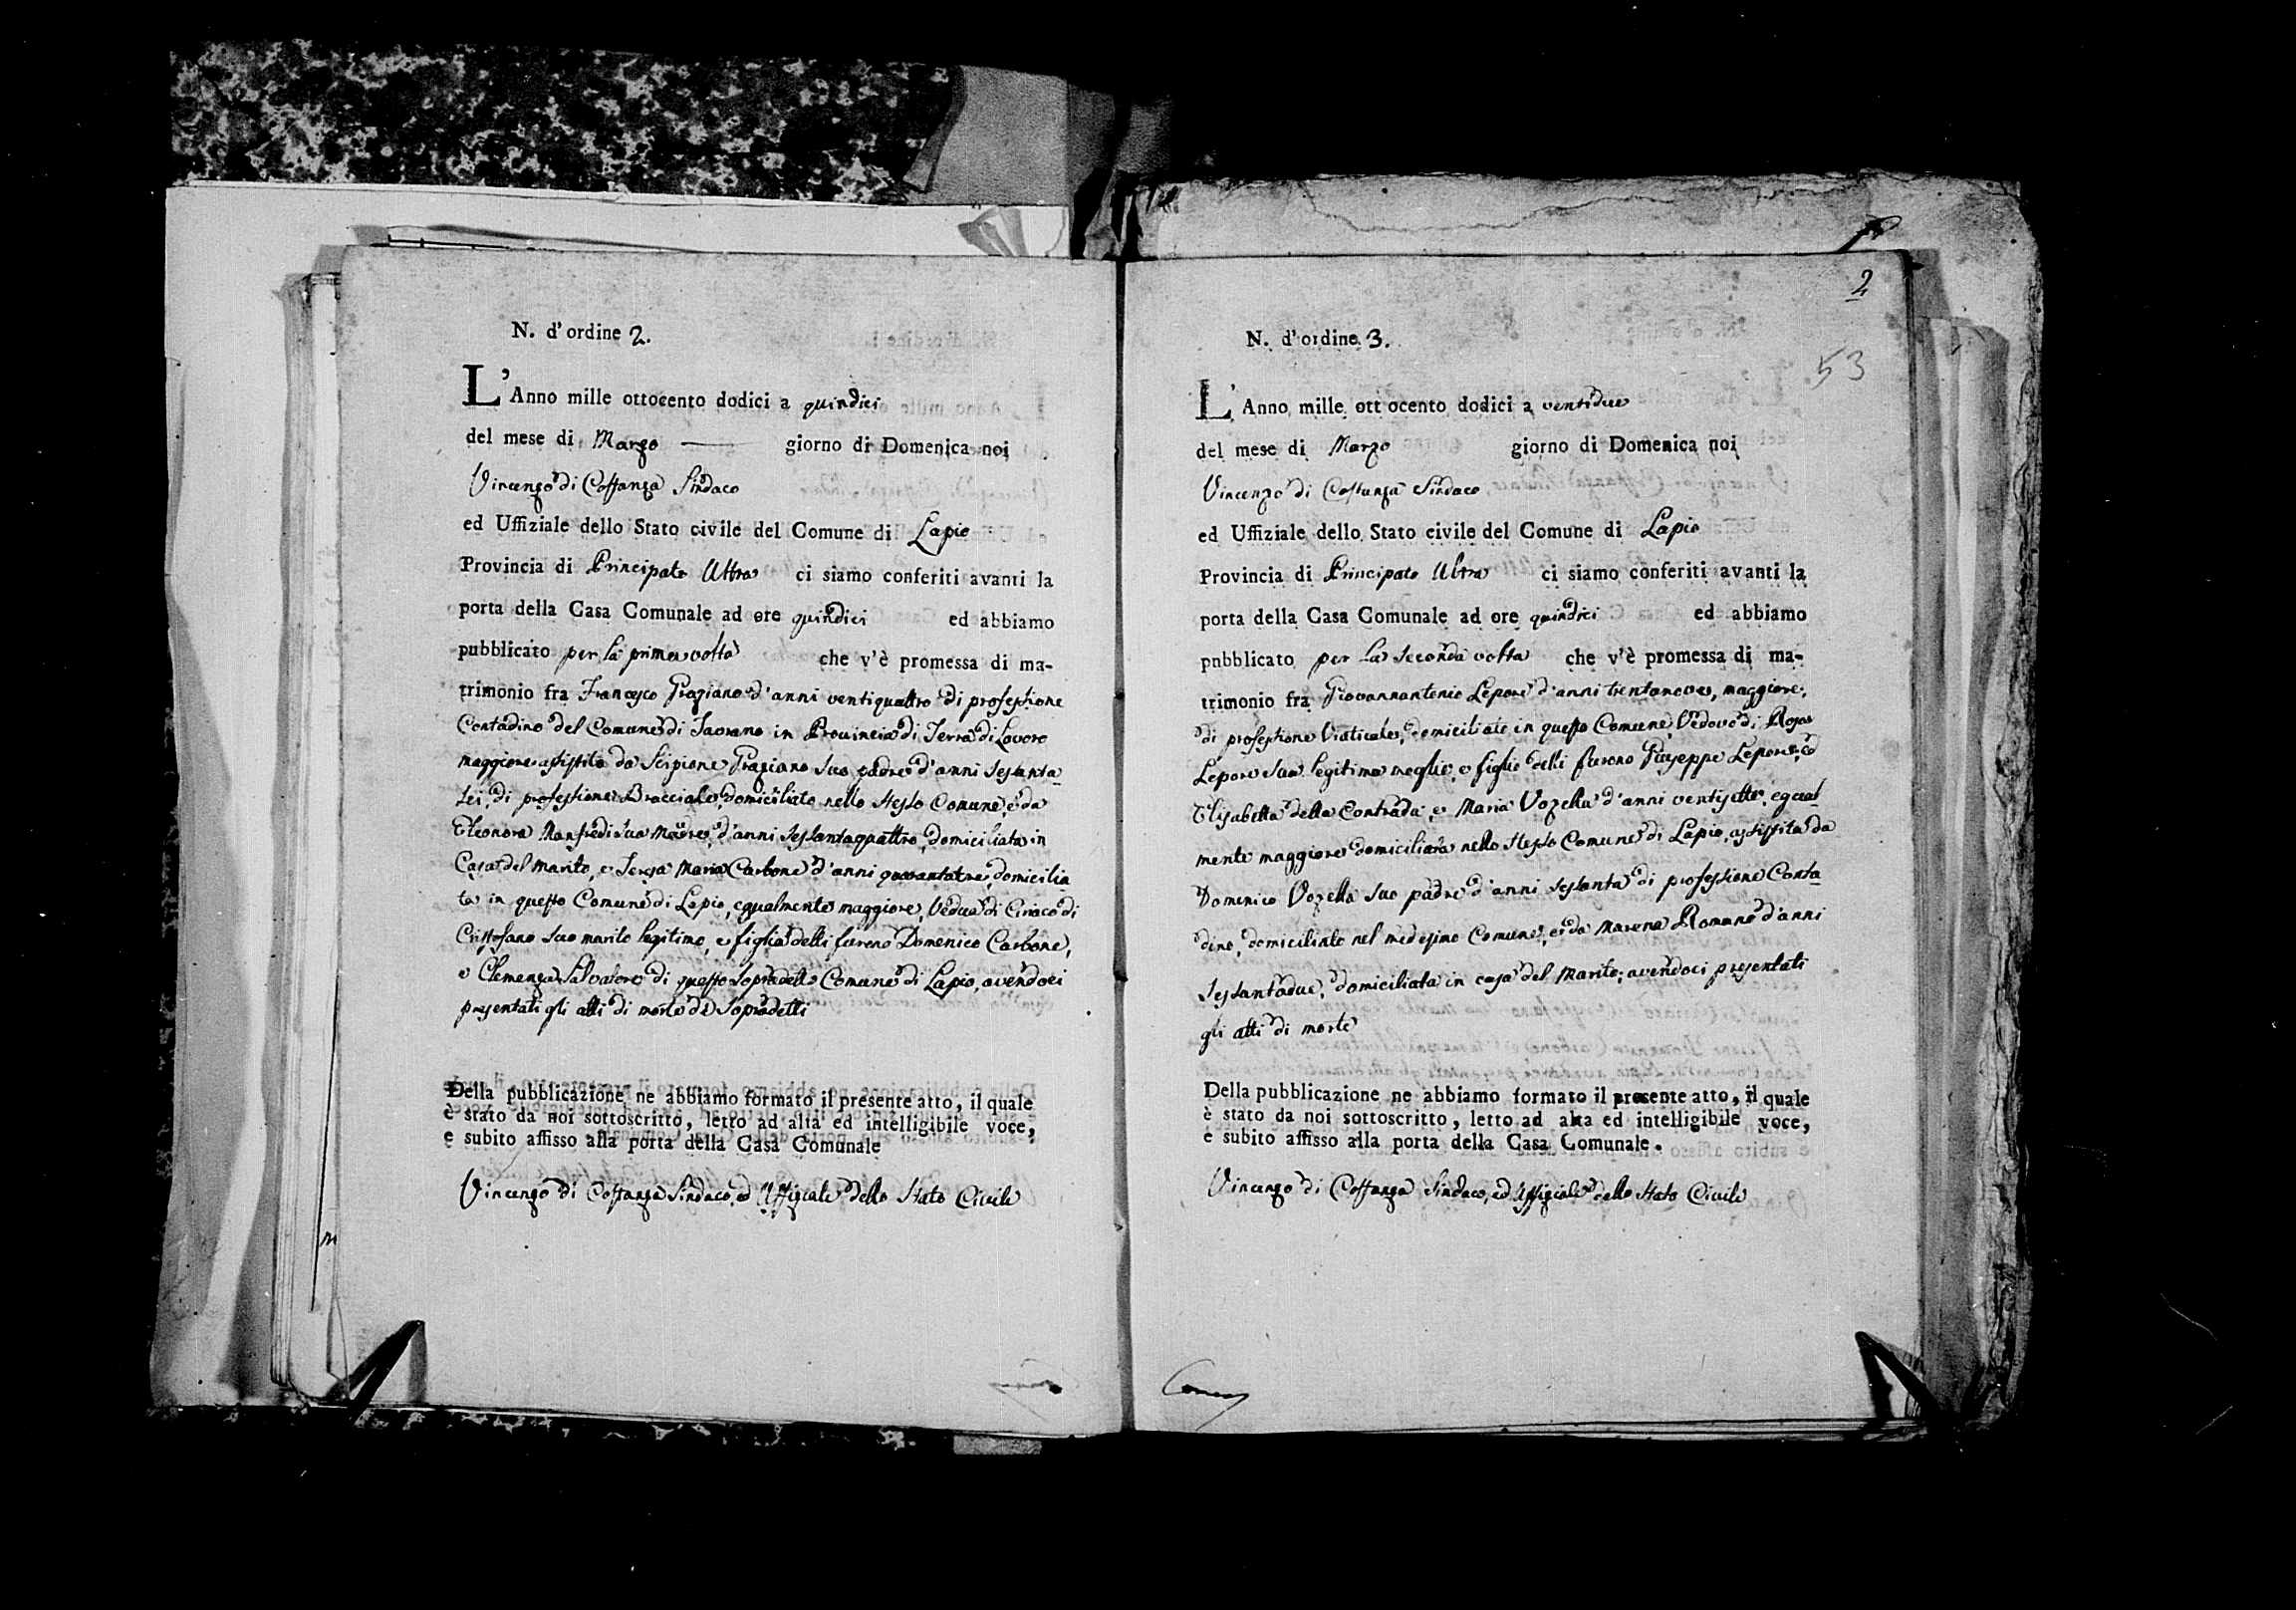 N. d'ordine 2.
L'Anno mille ottocento dodici a quindici
del mese di Marzo giorno di Domenica noi
Vincenzo di Costanza Sindaco
ed Uffiziale dello Stato civile del Comune di Lapio
Provincia di Principato Ultra ci siamo conferiti avanti la
porta della Casa Comunale ad ore quindici ed abbiamo
pubblicato per la prima volta che v'è promessa di ma-
trimonio fra Francesco Graziano d'anni ventiquattro di professione
Contadino del Comune di Taurano in Provincia di Terra di Lavoro
maggiore assistito da Scipione Graziano suo padre d'anni sessanta
sei, di professione Bracciale, domiciliato nello stesso Comune, e da
Eleonora Manfredi sua Madre, d'anni sessantaquattro, domiciliata in
Casa del Marito, e Teresa Maria Carbone d'anni quarantatre, domicilia
ta in questo Comune di Lapio, egualmente maggiore, Vedua di Ciriaco di
Cristofano suo marito legitimo, e figlia delli furono Domenico Carbone,
e Clemenza Salvatore di questo sopradetto Comune di Lapio, avendoci
presentati gli atti di morte de Sopradetti
Della pubblicazione ne abbiamo formato il presente atto, il quale
è stato da noi sottoscritto, letto ad alta ed intelligibile voce,
e subito affisso alla porta della Casa Comunale
Vincenzo di Costanza Sindaco, ed Uffiziale dello Stato Civile
2
53
N. d'ordine 3.
L'Anno mille ott ocento dodici a ventidue
del mese di Marzo giorno di Domenica noi
Vincenzo di Costanza Sindaco
ed Uffiziale dello Stato civile del Comune di Lapio
Provincia di Principato Ultra ci siamo conferiti avanti la
porta della Casa Comunale ad ore quindici ed abbiamo
pubblicato per la seconda volta che v'è promessa di ma-
trimonio fra Giovannantonio Lepore d'anni trentanove, maggiore,
di professione Viaticale, domiciliato in questo Comune, Vedovo di Rosa
Lepore sua legitima moglie, e figlio delli furono Giuseppe Lepore, ed
Elisabetta della Contrada, e Maria Vozella d'anni ventisette, egual
mente maggiore domiciliata nello stesso Comune di Lapio, assistita da
Domenico Vozella suo padre d'anni sessanta di professione Conta
dino, domiciliato nel medesimo Comune, e da Marena Romano d'anni
sessantadue, domiciliata in casa del Marito; avendoci presentati
gli atti di morte
Della pubblicazione ne abbiamo formato il presente atto, il quale
è stato da noi sottoscritto, letto ad alta ed intelligibile voce,
e subito affisso alla porta della Casa Comunale.
Vincenzo di Costanza Sindaco, ed Uffiziale dello Stato Civile